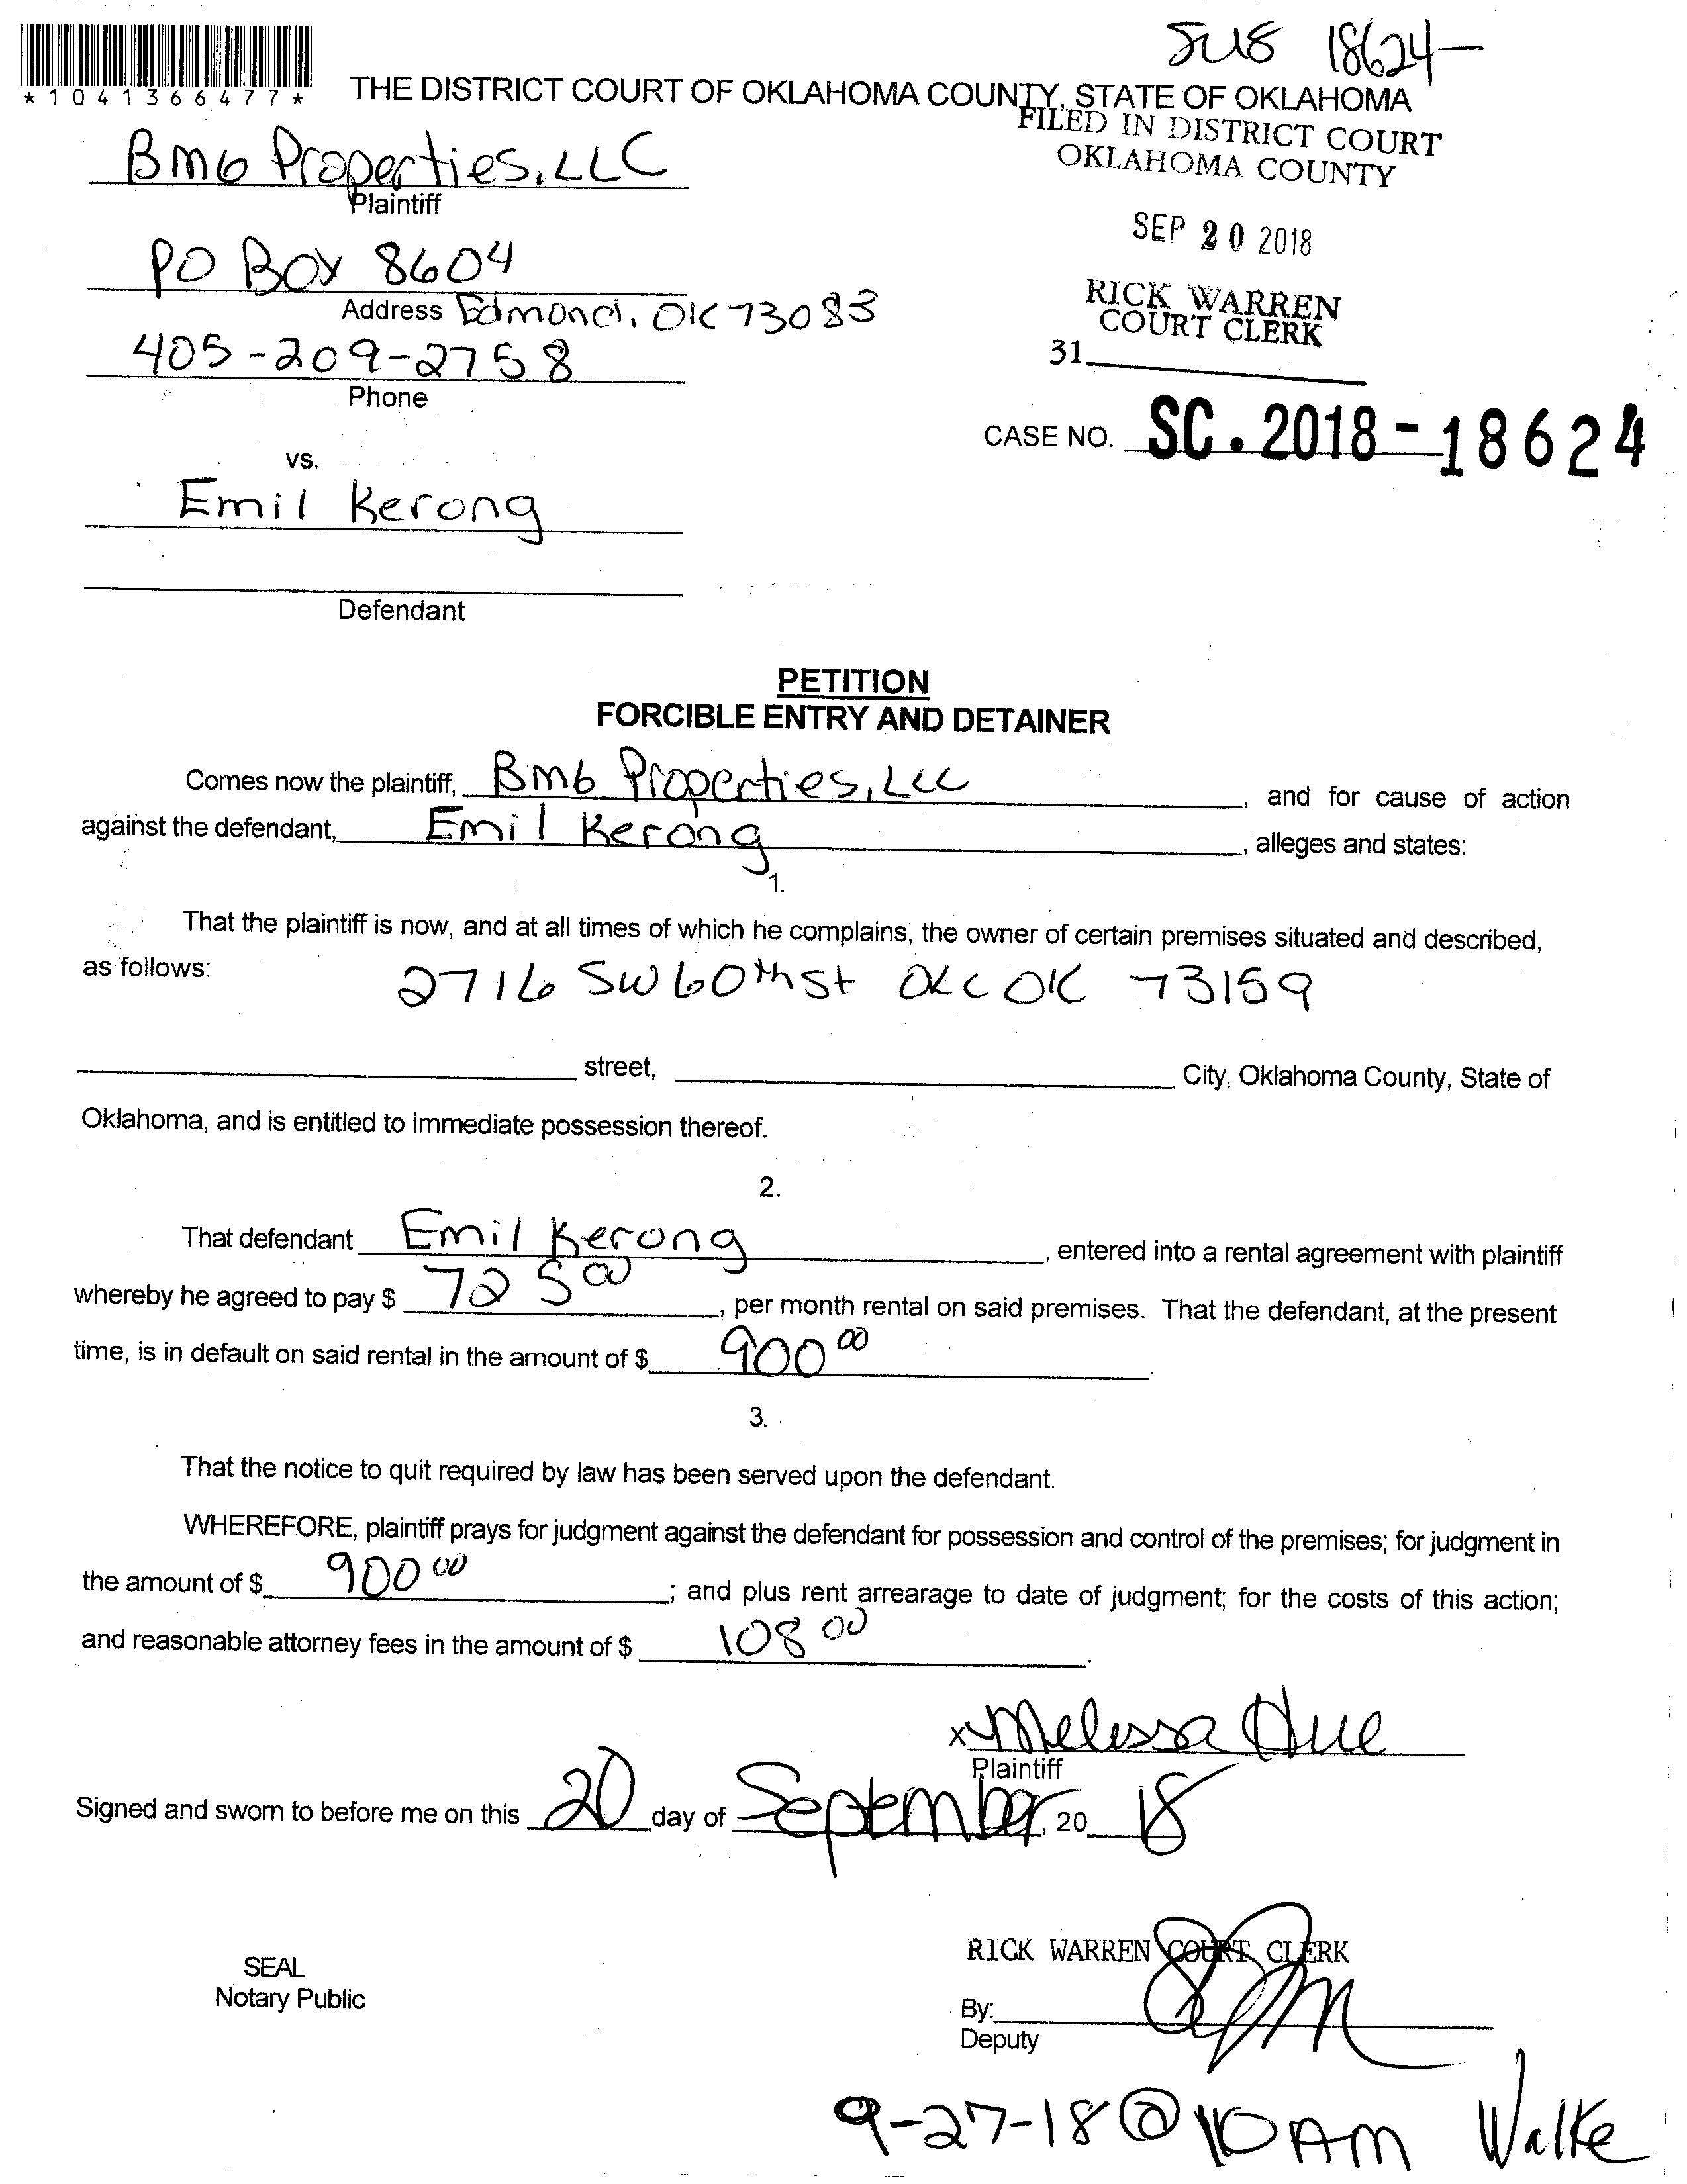 18624-
*1041366477*
THE DISTRICT COURT OF OKLAHOMA COUNTY, STATE OF OKLAHOMA
FILED IN DISTRICT COURT
OKLAHOMA COUNTY
Bmb Properties, LLC
Plaintiff
SEP 20 2018
PO Box 8604
Address Edmond, OK 73083
RICK WARREN
COURT CLERK
405-209-2758
Phone
31
CASE NO. SC. 2018-18624
vs.
Emil Kerong
Defendant
PETITION
FORCIBLE ENTRY AND DETAINER
Comes now the plaintiff, Bmb Properties, LLC, and for cause of action
against the defendant, Emil Kerong, alleges and states:
1.
That the plaintiff is now, and at all times of which he complains, the owner of certain premises situated and described,
as follows: 2716 SW 60th St OKC OK 73159
street, City, Oklahoma County, State of
Oklahoma, and is entitled to immediate possession thereof.
2.
That defendant Emil Kerong, entered into a rental agreement with plaintiff
whereby he agreed to pay $ 725 00, per month rental on said premises. That the defendant, at the present
time, is in default on said rental in the amount of $ 900 00.
3.
That the notice to quit required by law has been served upon the defendant.
WHEREFORE, plaintiff prays for judgment against the defendant for possession and control of the premises; for judgment in
the amount of $ 900 00; and plus rent arrearage to date of judgment; for the costs of this action;
and reasonable attorney fees in the amount of $ 108 00.
x Melissa Hue
Plaintiff
Signed and sworn to before me on this 20 day of September, 20 18
RICK WARREN COURT CLERK
SEAL
Notary Public
By:
Deputy
9-27-18 @ 10 AM Walke